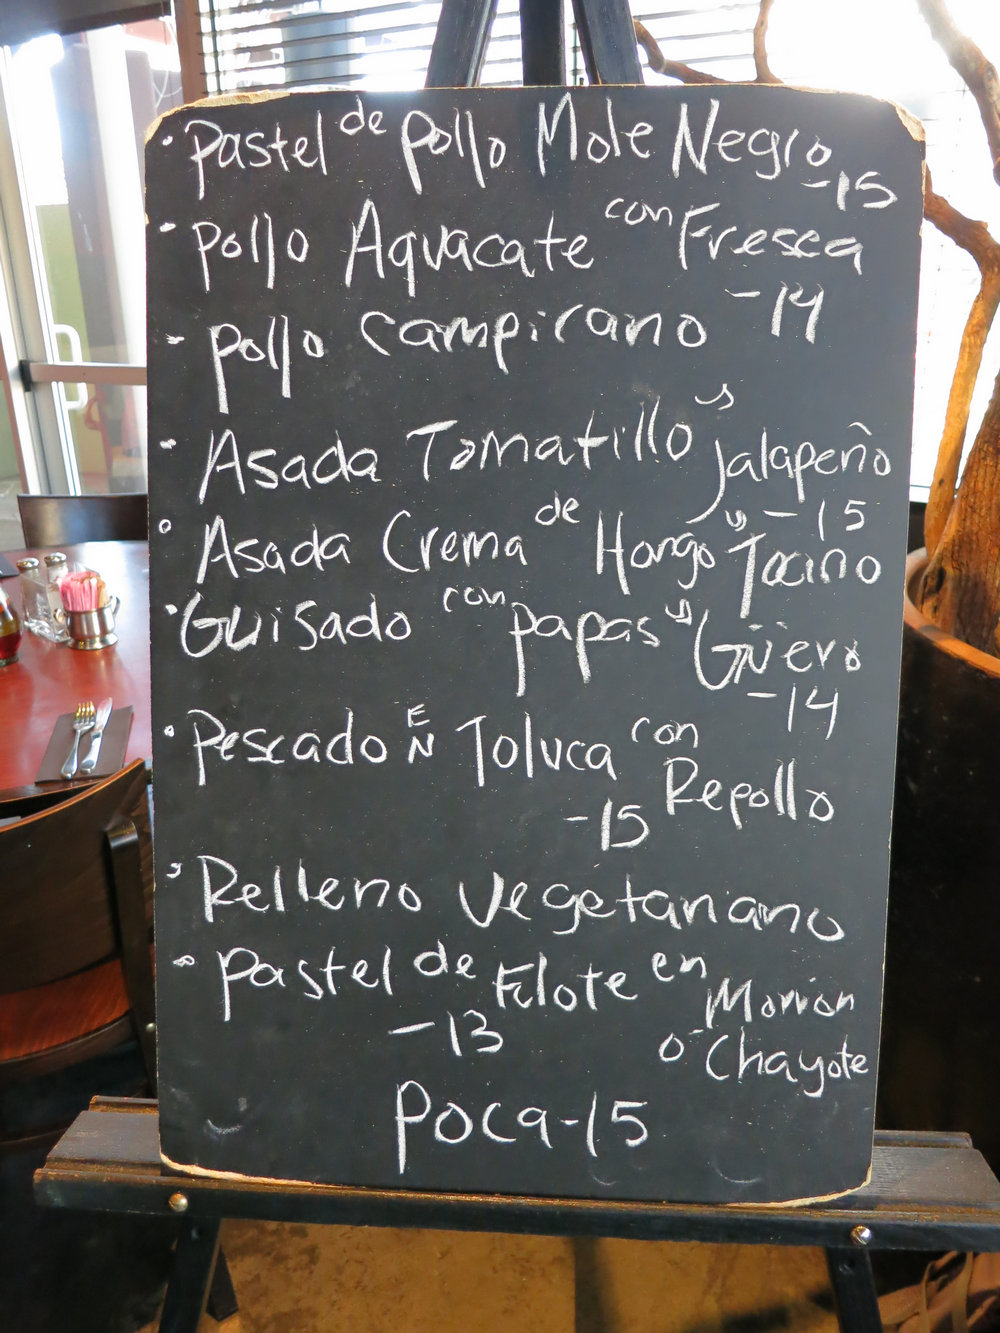 • Pastel de Pollo Mole Negro
-15
• Pollo Aguacate con Fresca
-14
- Pollo Campirano
- Asada Tomatillo y Jalapeño
-15
• Asada Crema de Hongo y Tocino
• Guisado con papas y Güero
-14
• Pescado EN Toluca con Repollo
-15
• Relleno Vegetariano
• Pastel de Elote en
-13
o Chayote
Poca-15